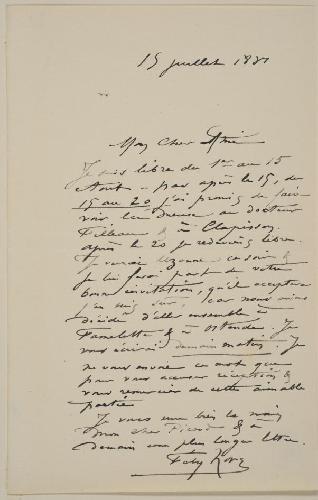 15 juillet 18
Mon Cher Ami
Je suis libre du 1er au 15
Août – pas après le 15, du
15 au 20 j'ai promis de faire
voir au docteur
Filleau & à Clapisson.
après le 20 je redeviens libre.
Je verrai Uzanne ce soir &
je lui ferai part de votre
bonne invitation, qu'il acceptera
j'en suis sûr, car nous avions
décidé d'aller ensemble à
& à Ostende. Je
vous écrirai demain matin. Je
ne vous envoie ce mot que
pour vous accuser réception &
vous remercier de cette aimable
partie
Je vous serre bien la main
mon cher Picard & à
demain une plus longue lettre.
Fely Rops